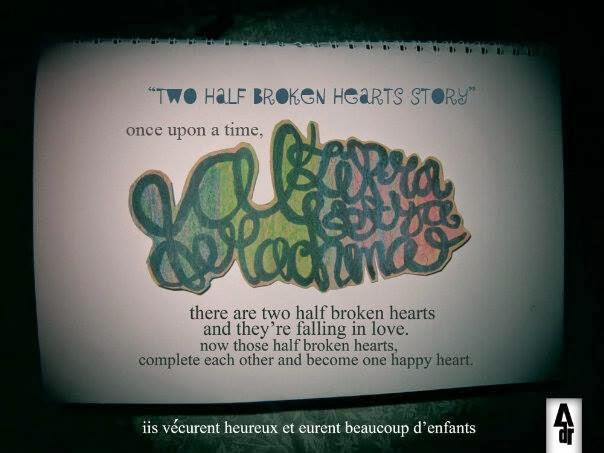 "TWO HALF BROKEN HEARTS STORY"
once upon a time,
there are two half broken hearts
and they're falling in love.
now those half broken hearts,
complete each other and become one happy heart.
iis vécurent heureux et eurent beaucoup d'enfants